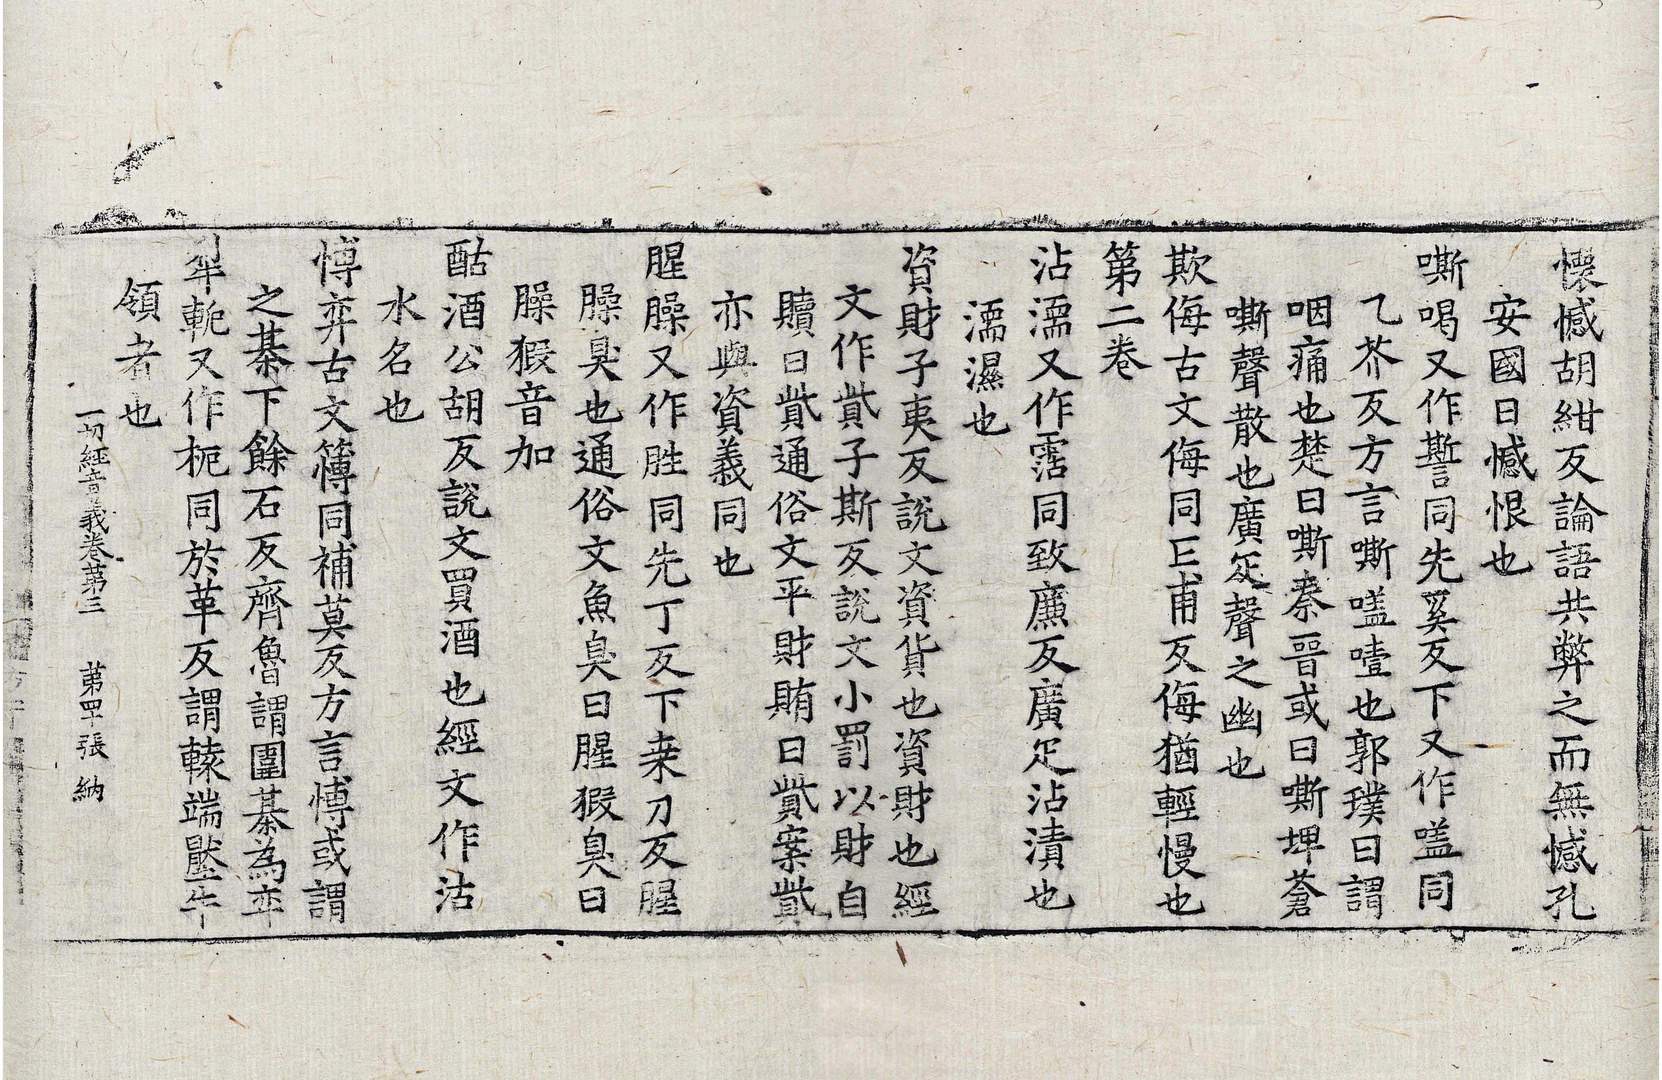 懷憾胡紺反論語共弊之而無憾孔
安國曰憾恨也
嘶喝又作㽄同先奚反下又作嗌同
乙芥反方言嘶嗌噎也郭璞曰謂
咽痛也楚曰嘶秦晉或曰嘶埤蒼
嘶聲散也廣疋聲之幽也
欺侮古文侮同亡甫反侮猶輕慢也
第二卷
沾濡又作霑同致廉反廣疋沾漬也
濡濕也
資財子夷反說文資貨也資財也經
文作貲子斯反說文小罰以財自
贖曰貲通俗文平財賄曰貲案貲
亦與資義同也
腥臊又作胜同先丁反下桒刀反腥
臊臭也通俗文魚臭曰腥猳臭曰
臊猳音加
酤酒公胡反說文買酒也經文作沽
水名也
愽弈古文簙同補莫反方言愽或謂
之棊下餘石反齊魯謂圍棊為弈
犁軛又作枙同於革反謂轅端壓牛
領者也
一切經音義卷第三　第四十張　納